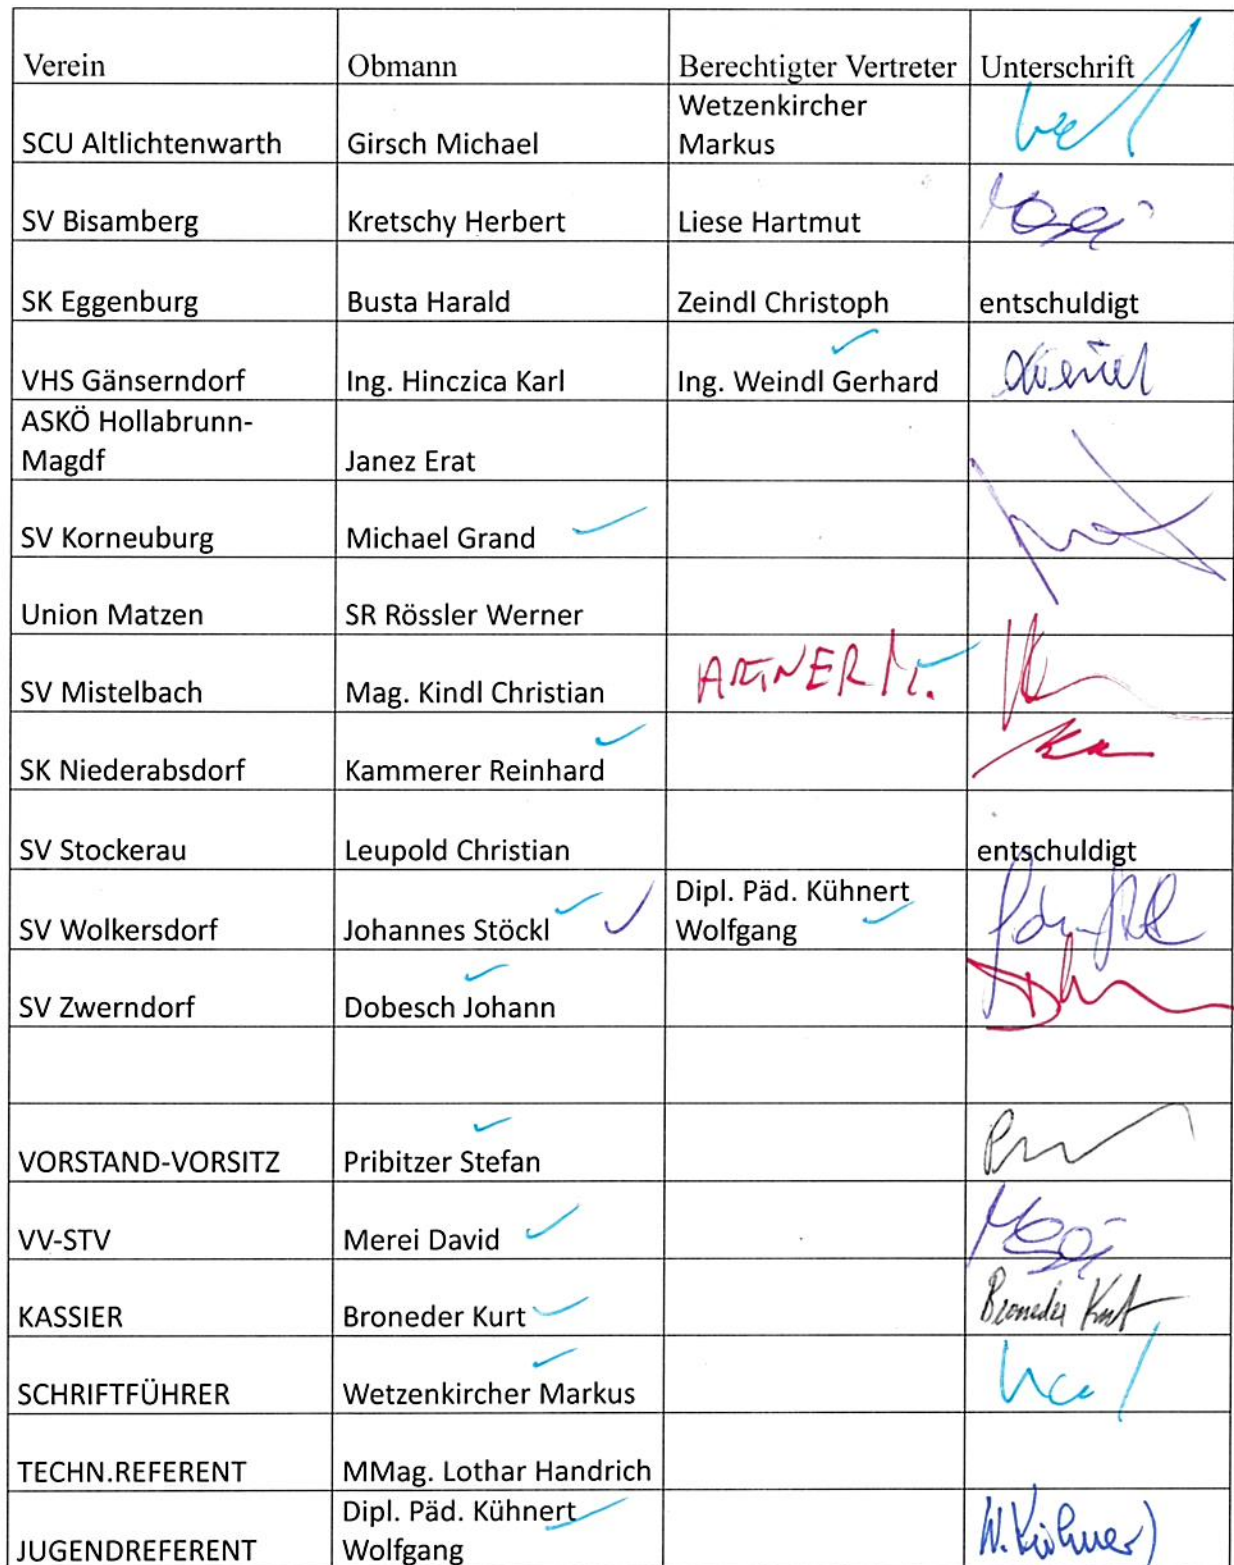 Verein Obmann Berechtigter Vertreter Unterschrift
SCU Altlichtenwarth Girsch Michael Wetzenkircher
Markus
SV Bisamberg Kretschy Herbert Liese Hartmut
SK Eggenburg Busta Harald Zeindl Christoph entschuldigt
VHS Gänserndorf Ing. Hinczica Karl Ing. Weindl Gerhard
ASKÖ Hollabrunn-
Magdf Janez Erat
SV Korneuburg Michael Grand
Union Matzen SR Rössler Werner
SV Mistelbach Mag. Kindl Christian ARTNER M.
SK Niederabsdorf Kammerer Reinhard
SV Stockerau Leupold Christian entschuldigt
SV Wolkersdorf Johannes Stöckl Dipl. Päd. Kühnert
Wolfgang
SV Zwerndorf Dobesch Johann
VORSTAND-VORSITZ Pribitzer Stefan
VV-STV Merei David
KASSIER Broneder Kurt Broneder Kurt
SCHRIFTFÜHRER Wetzenkircher Markus
TECHN.REFERENT MMag. Lothar Handrich
JUGENDREFERENT Dipl. Päd. Kühnert
Wolfgang W. Kühnert